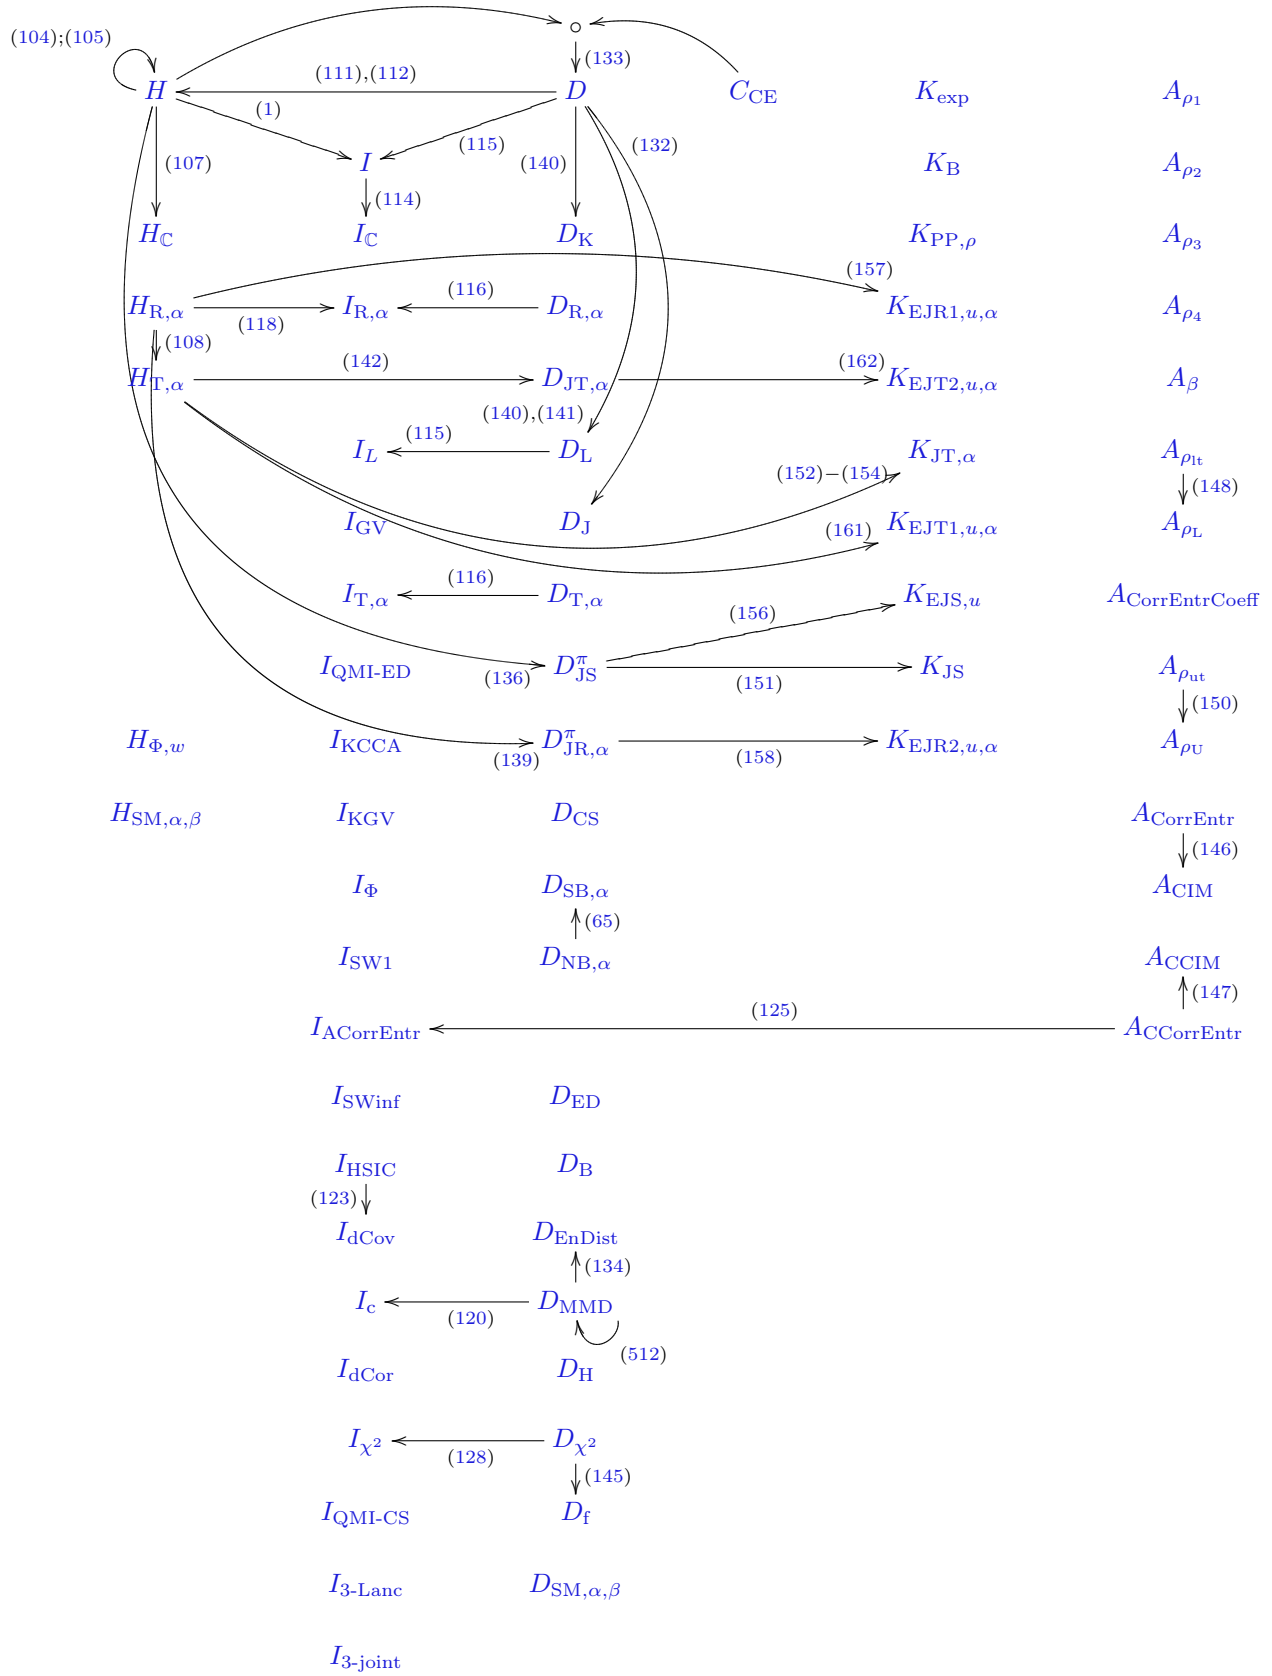 (104);(105)
∘
(133)
(111),(112)
H D C_CE K_exp A_ρ₁
(1) (115) (132)
(107) I (140) K_B A_ρ₂
(114)
H_ℂ I_ℂ D_K K_PP,ρ A_ρ₃
(157)
(116)
H_R,α I_R,α D_R,α K_EJR1,u,α A_ρ₄
(118)
(108)
(142) (162)
H_T,α D_JT,α K_EJT2,u,α A_β
(140),(141)
(115)
I_L D_L K_JT,α A_ρ_lt
(152)−(154)
(148)
I_GV D_J K_EJT1,u,α A_ρ_L
(161)
(116)
I_T,α D_T,α K_EJS,u A_CorrEntrCoeff
(156)
I_QMI-ED D^π_JS K_JS A_ρ_ut
(136) (151)
(150)
H_Φ,w I_KCCA D^π_JR,α K_EJR2,u,α A_ρ_U
(139) (158)
H_SM,α,β I_KGV D_CS A_CorrEntr
(146)
I_Φ D_SB,α A_CIM
(65)
I_SW1 D_NB,α A_CCIM
(147)
(125)
I_ACorrEntr A_CCorrEntr
I_SWinf D_ED
I_HSIC D_B
(123)
I_dCov D_EnDist
(134)
I_c D_MMD
(120)
(512)
I_dCor D_H
I_χ² D_χ²
(128)
(145)
I_QMI-CS D_f
I_3-Lanc D_SM,α,β
I_3-joint